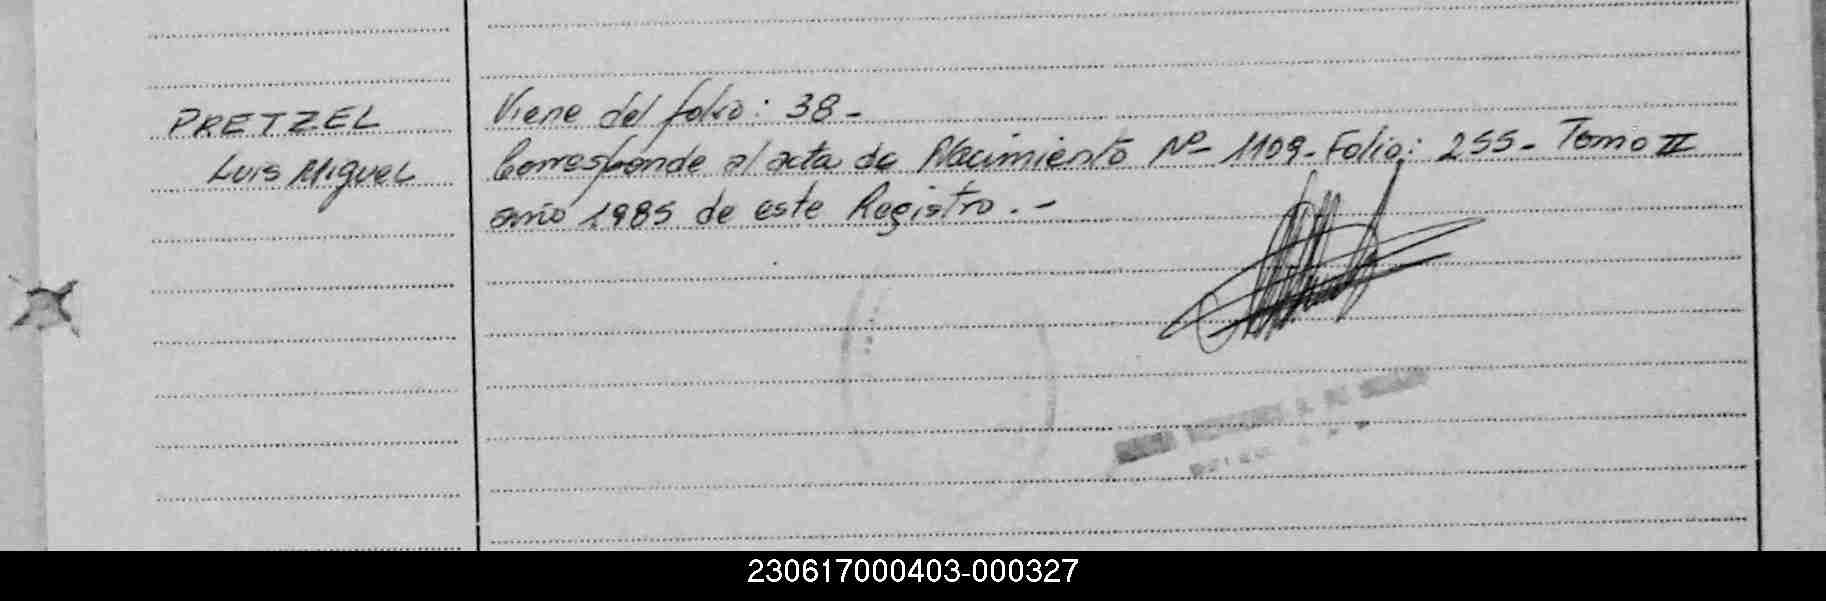 PRETZEL
Luis Miguel
Viene del folio: 38-
Corresponde al acta de Nacimiento Nº 1109-Folio: 255- Tomo II
año 1985 de este Registro.-
230617000403-000327